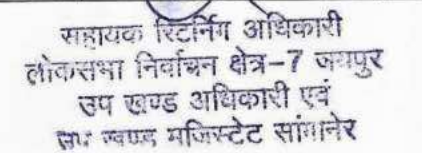 सहायक रिटर्निंग अधिकारी
लोकसभा निर्वाचन क्षेत्र-7 जयपुर
उप खण्ड अधिकारी एवं
उप खण्ड मजिस्टेट सांगानेर